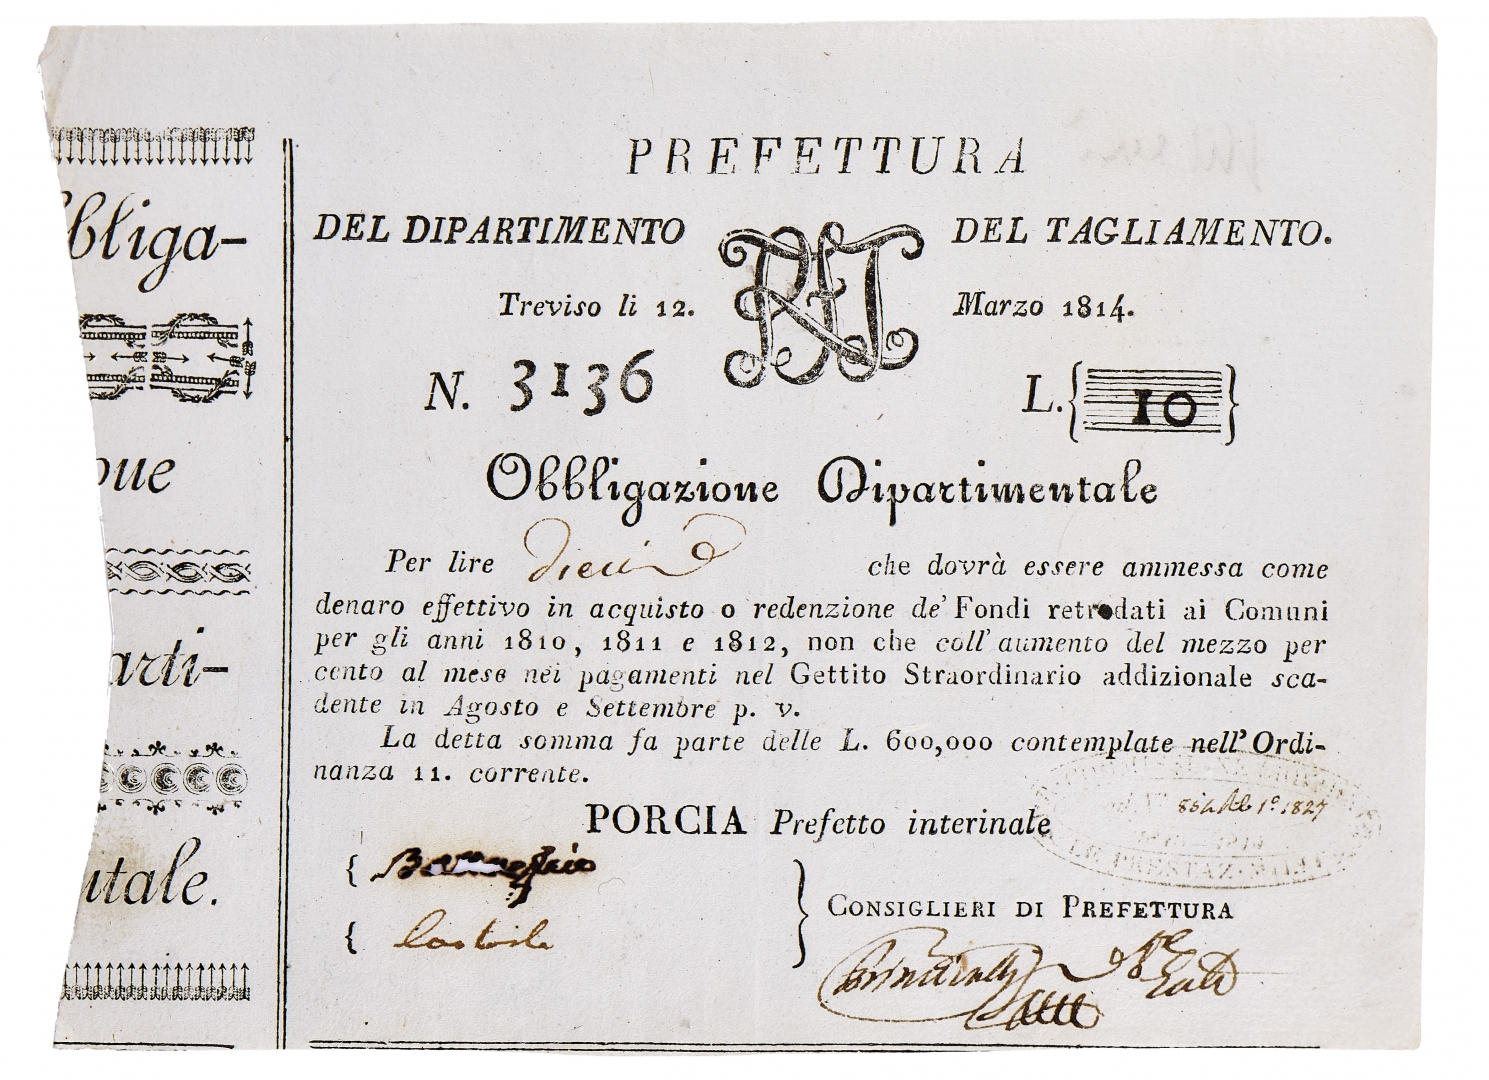 bbliga-
oue
arti-
ntale.
PREFETTURA
DEL DIPARTIMENTO DEL TAGLIAMENTO.
Treviso li 12. Marzo 1814.
N. 3136 L. 10
Obbligazione Dipartimentale
Per lire dieci che dovrà essere ammessa come
denaro effettivo in acquisto o redenzione de' Fondi retrodati ai Comuni
per gli anni 1810, 1811 e 1812, non che coll' aumento del mezzo per
cento al mese nei pagamenti nel Gettito Straordinario addizionale sca-
dente in Agosto e Settembre p. v.
La detta somma fa parte delle L. 600,000 contemplate nell' Ordi-
nanza 11. corrente.
1827
PORCIA Prefetto interinale
CONSIGLIERI DI PREFETTURA